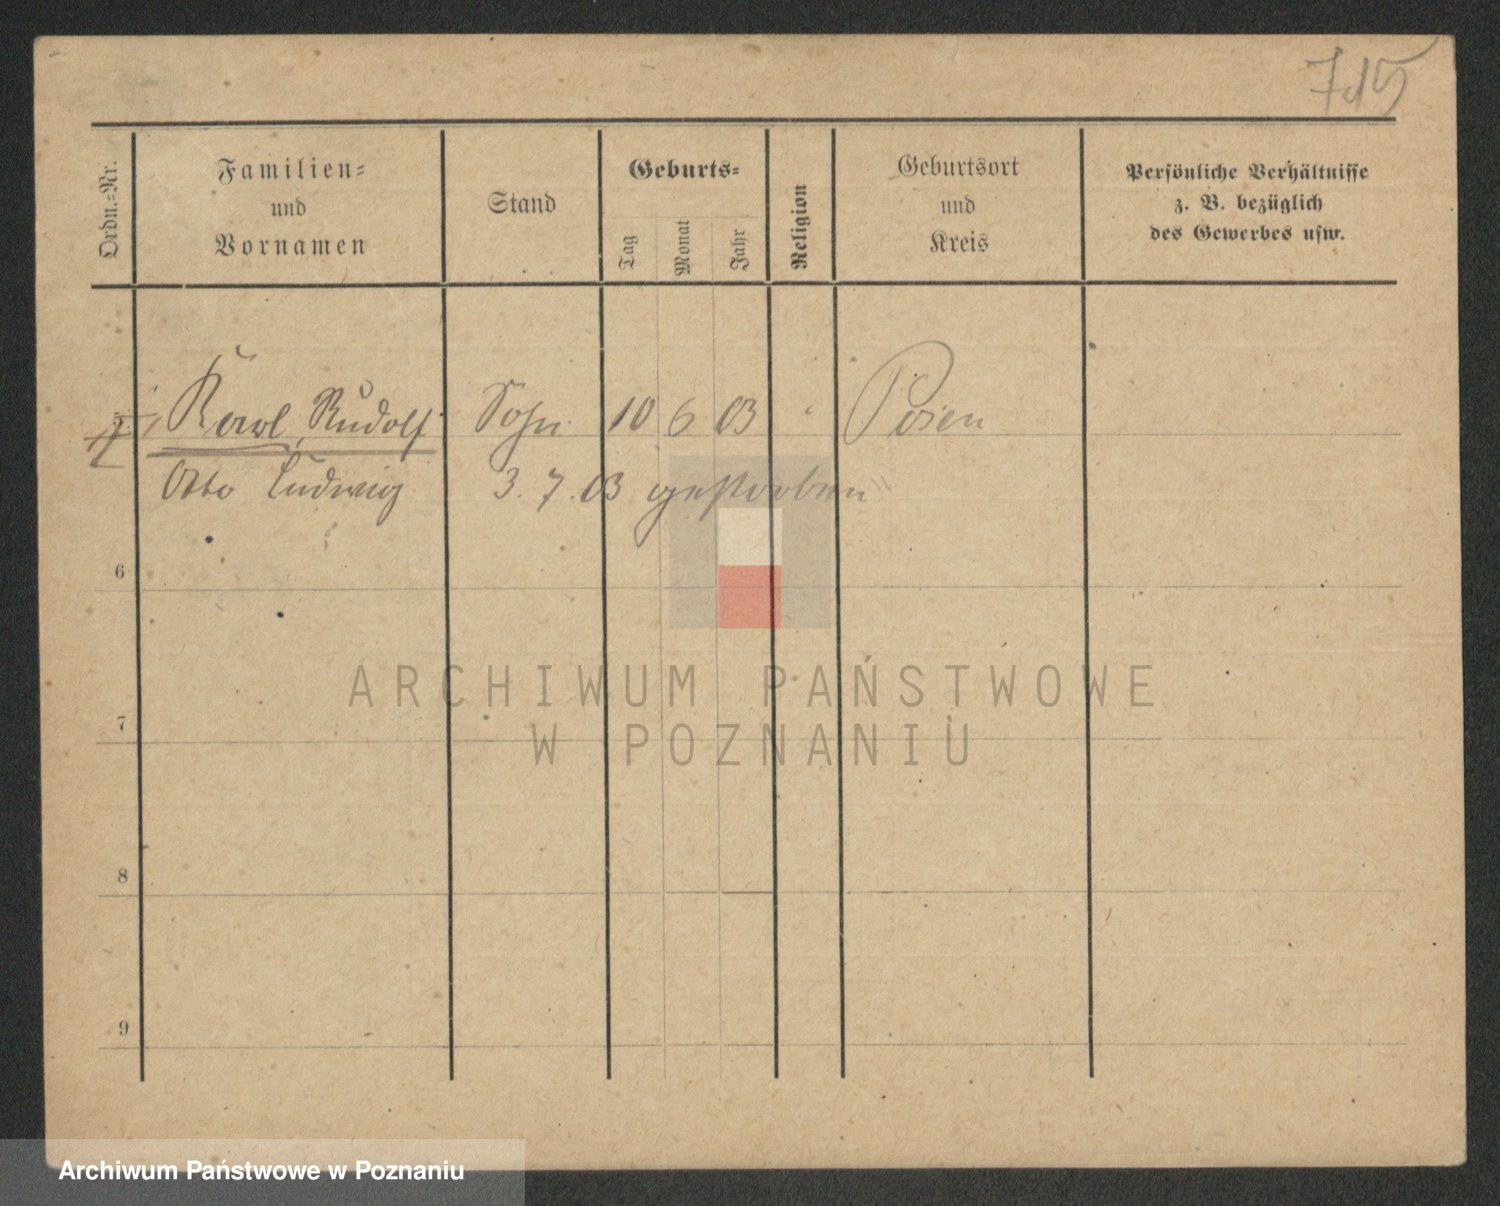 715
Ordn.-Nr.
Familien-
und
Vornamen
Stand
Geburts-
Tag
Monat
Jahr
Religion
Geburtsort
und
Kreis
Persönliche Verhältnisse
z. B. bezüglich
des Gewerbes usw.
Karl, Rudolf Sohn 10 6 03 " Posen
Otto Ludwig 3. 7. 03 gestorben
6
7
8
9
ARCHIWUM PAŃSTWOWE
W POZNANIU
Archiwum Państwowe w Poznaniu